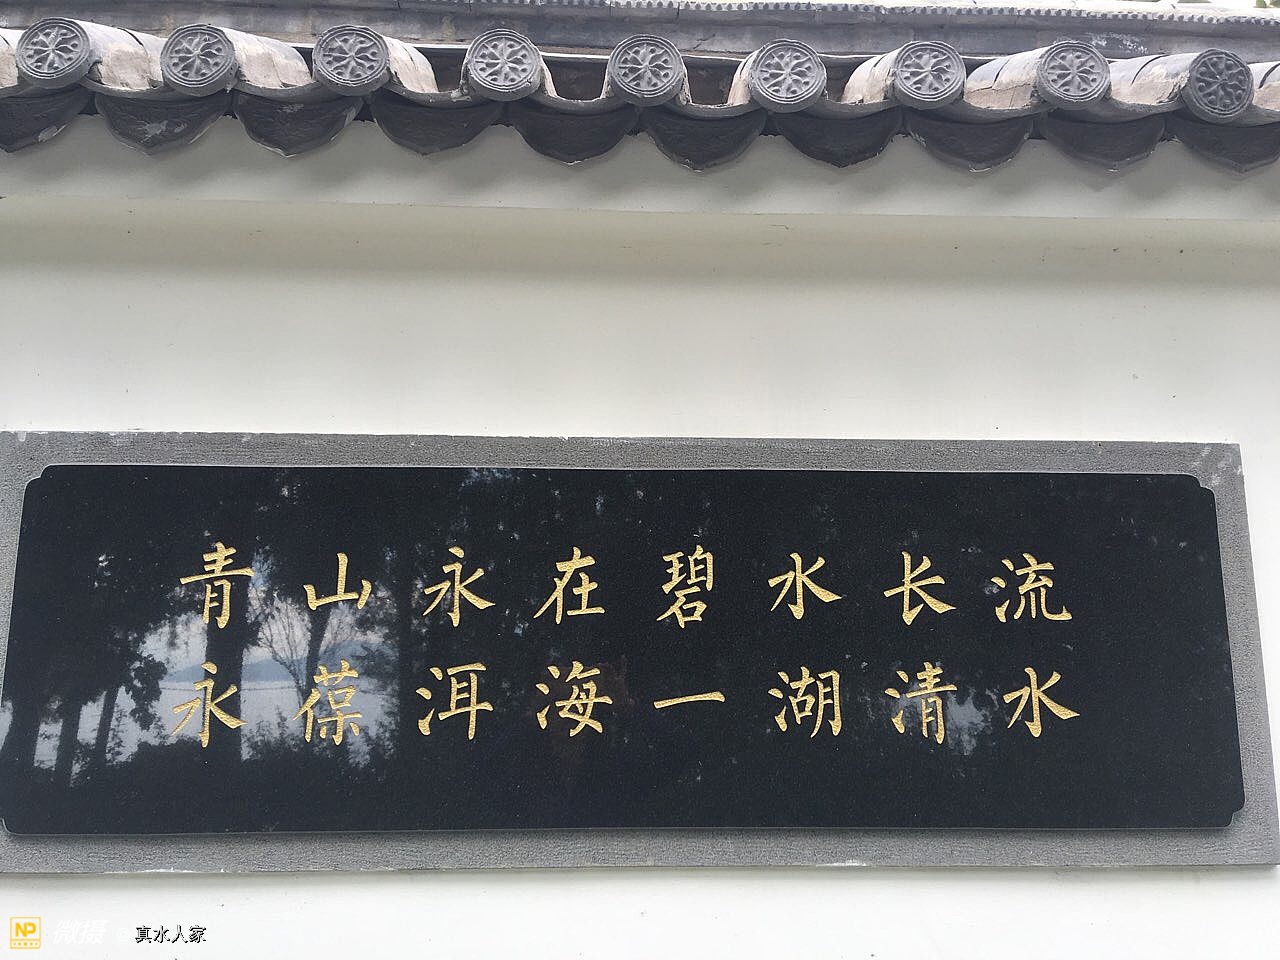 青山永在碧水长流
永葆洱海一湖清水
NP 微摄 @真水人家